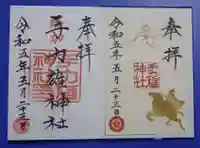 奉拝
手力雄
神社
令和五年五月二十三日
奉拝
手力雄神社
令和五年五月二十三日